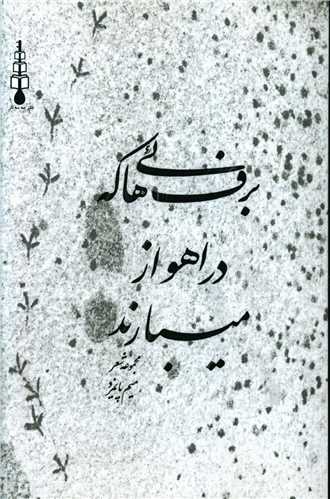 برف‌هائی که
در اهواز
میبارند
مجموعه شعر